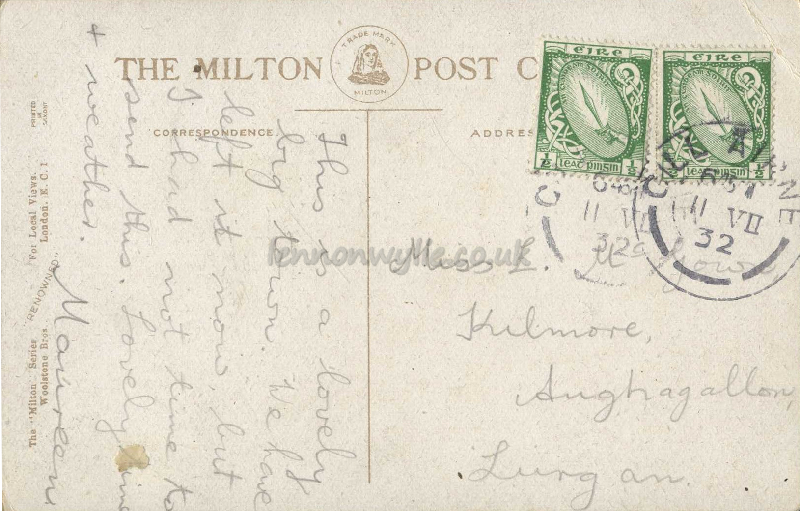 THE MILTON POST C
TRADE MARK
MILTON
CORRESPONDENCE.
ADDRES
PRINTED
IN
SAXONY
The "Milton" Series For Local Views.
RENOWNED.
Woolstone Bros. London, E.C.1
ÉIRE
½ leat pingin ½
ÉIRE
½ leat pingin ½
11 VII
32
11 VII
32
This is a lovely
big town. We have
left it now but
I had not time to
send this. Lovely time
+ weather.
Maureen
Miss L.
Kilmore,
Aughagallon,
Lurgan.
lennonwylie.co.uk